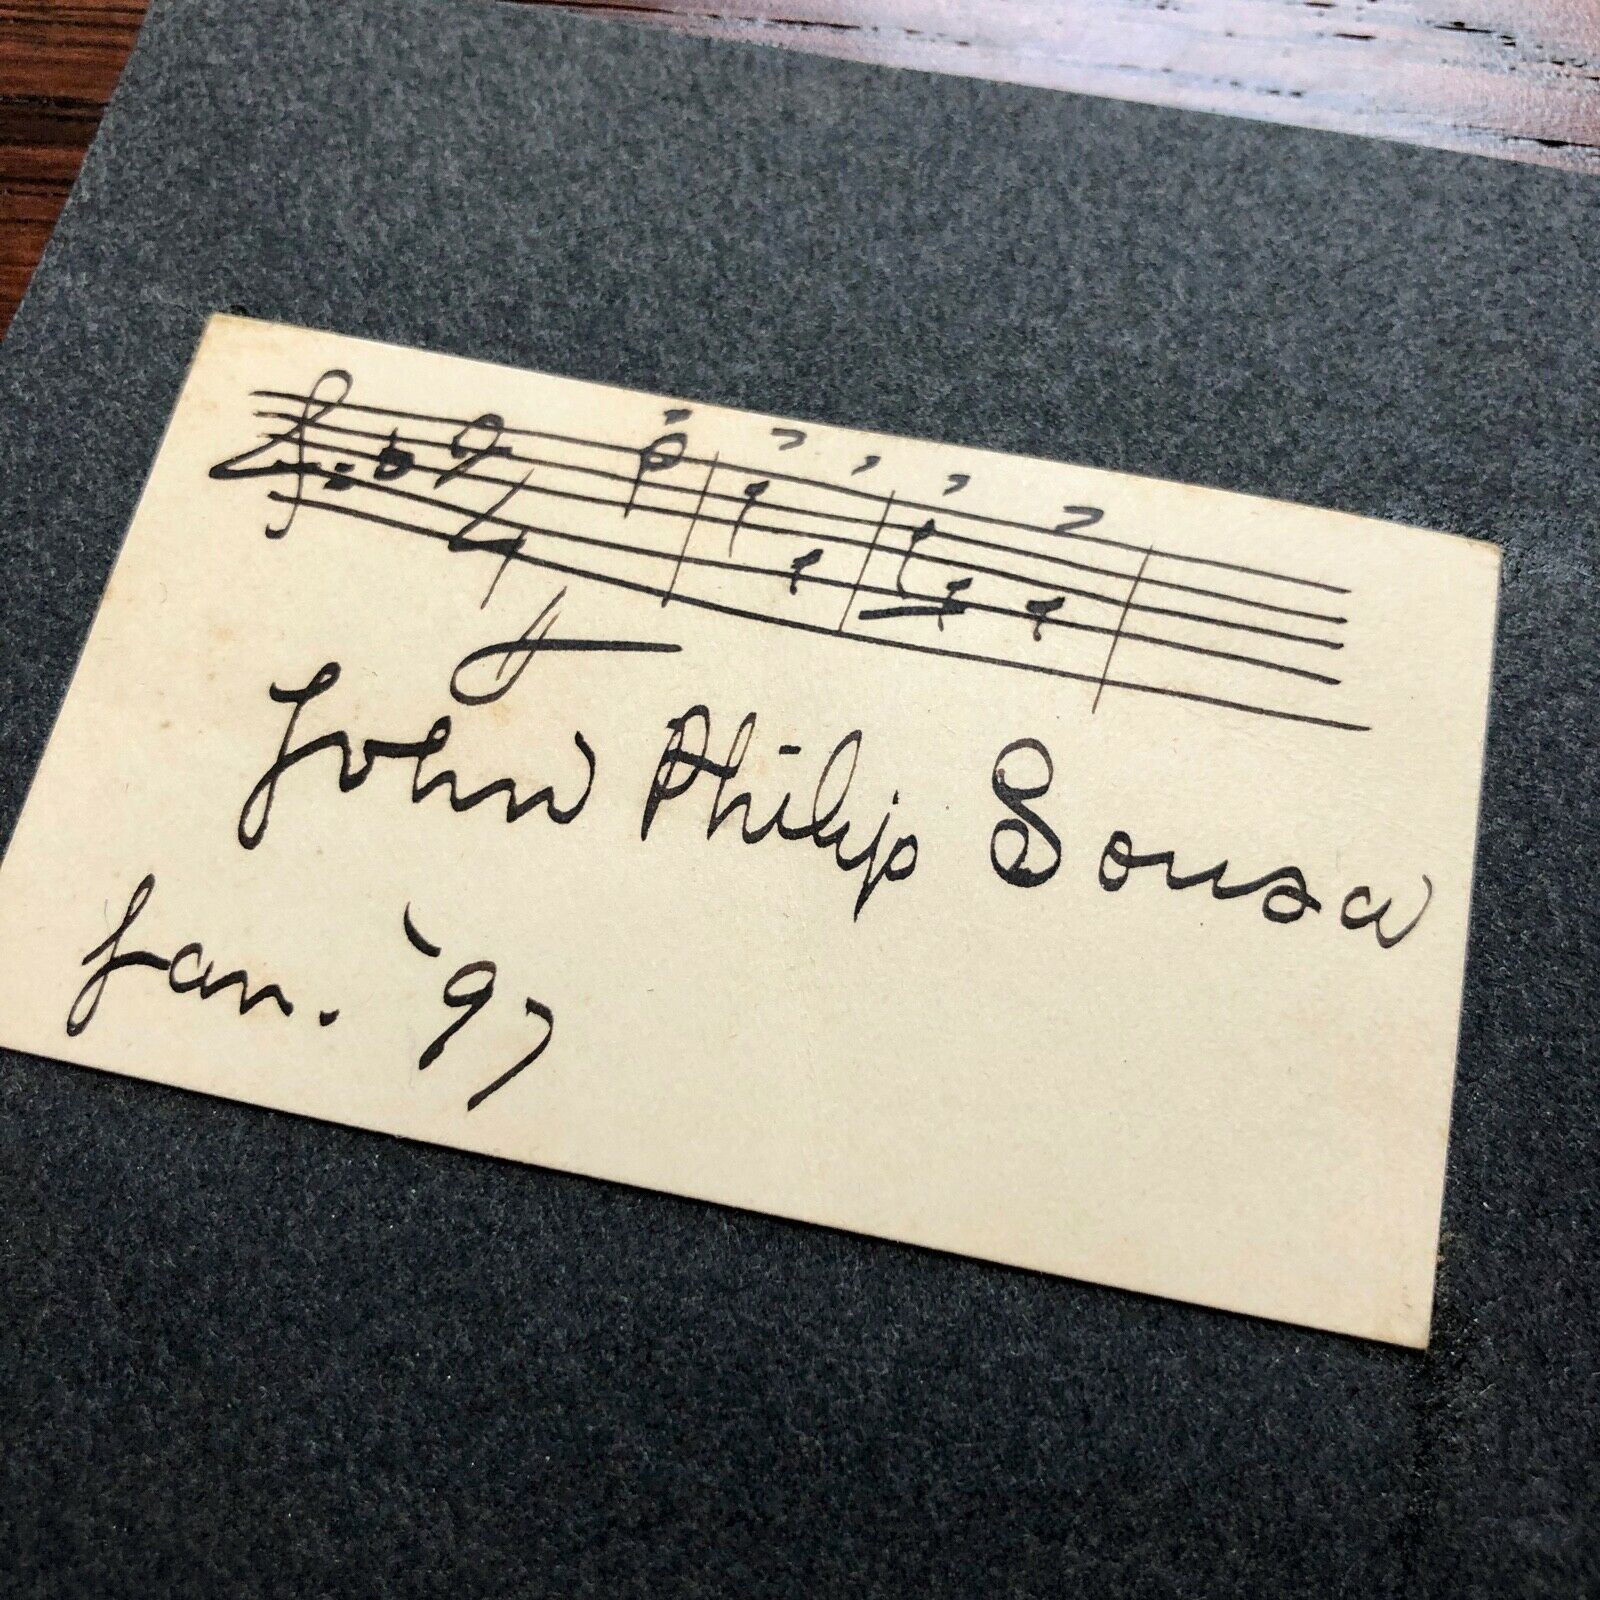 2
4
ff
John Philip Sousa
Jan. '97